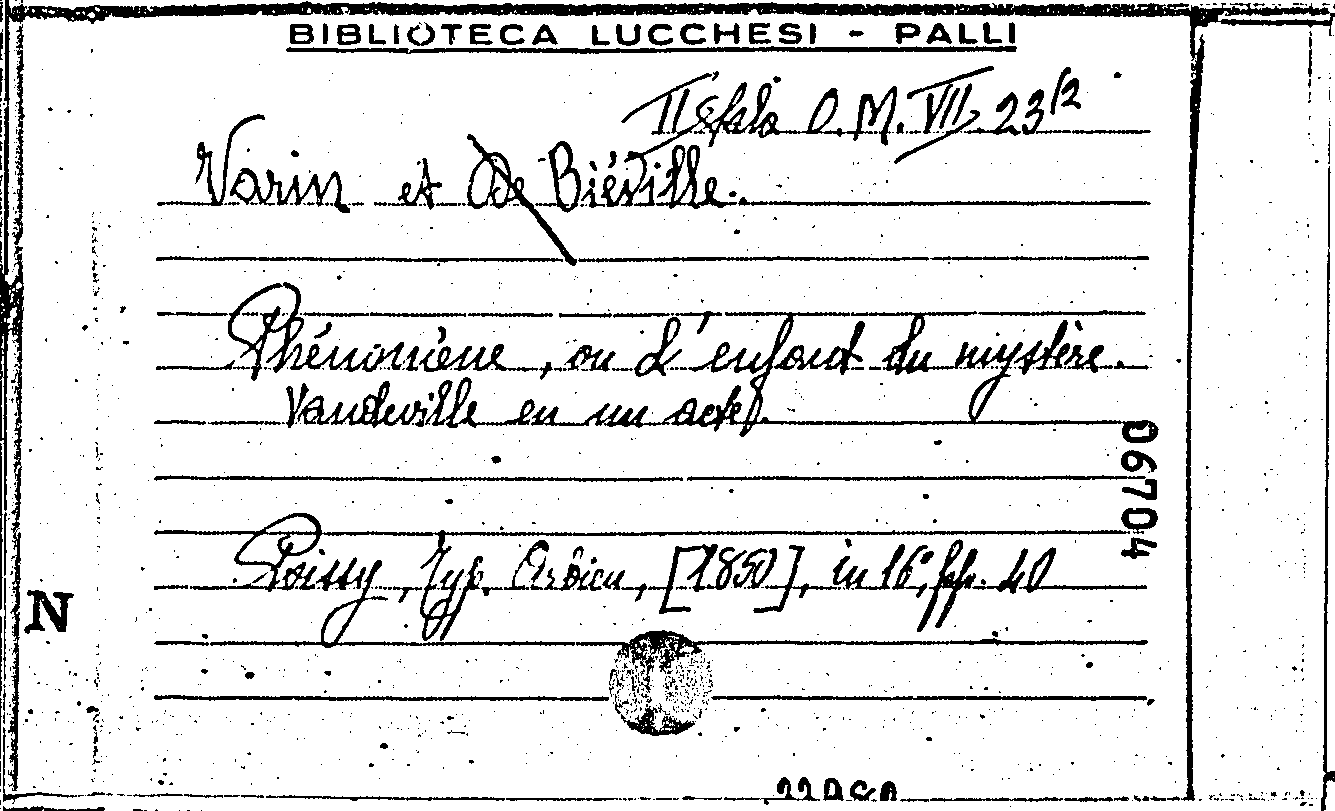 BIBLIOTECA LUCCHESI - PALLI
II Sala O. M. VII. 23/2
Varin et De Biéville.
Phénomène, ou L'enfant du mystère.
Vaudeville en un acte.
06704
Poissy, Typ. Arbieu, [1850], in 16°, pp. 40
N